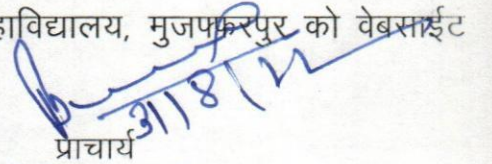 हाविद्यालय, मुजफ्फरपुर को वेबसाईट
प्राचार्य